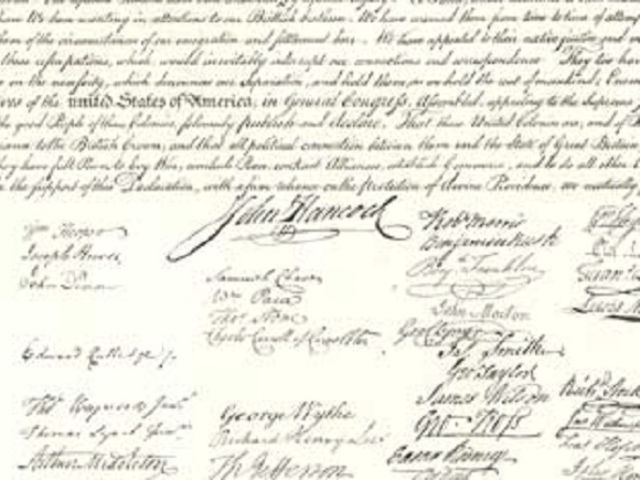 have We been wanting in attentions to our Brittish brethren. We have warned them from time to time of
them of the circumstances of our emigration and settlement here. We have appealed to their native justice and
these usurpations, which, would inevitably interrupt our connections and correspondence. They too
in the necessity, which denounces our Separation, and hold them, as we hold the rest of mankind,
ives of the united States of America, in General Congress, Assembled, appealing to the Supreme
the good People of these Colonies, solemnly publish and declare, That these United Colonies are, and of
giance to the British Crown, and that all political connection between them and the State of Great Britain
they have full Power to levy War, conclude Peace, contract Alliances, establish Commerce, and to do all other
the support of this Declaration, with a firm reliance on the Protection of divine Providence, we mutually
John Hancock
Wm Hooper
Joseph Hewes
John Penn
Edward Rutledge
Thos Heyward Junr
Thomas Lynch Junr
Arthur Middleton
Samuel Chase
Wm Paca
Thos Stone
Charles Carroll of Carrollton
George Wythe
Richard Henry Lee
Th Jefferson
Robt Morris
Benjamin Rush
Benja Franklin
John Morton
Geo Clymer
Jas Smith
Geo Taylor
James Wilson
Geo. Ross
Caesar Rodney
Lewis
Richd